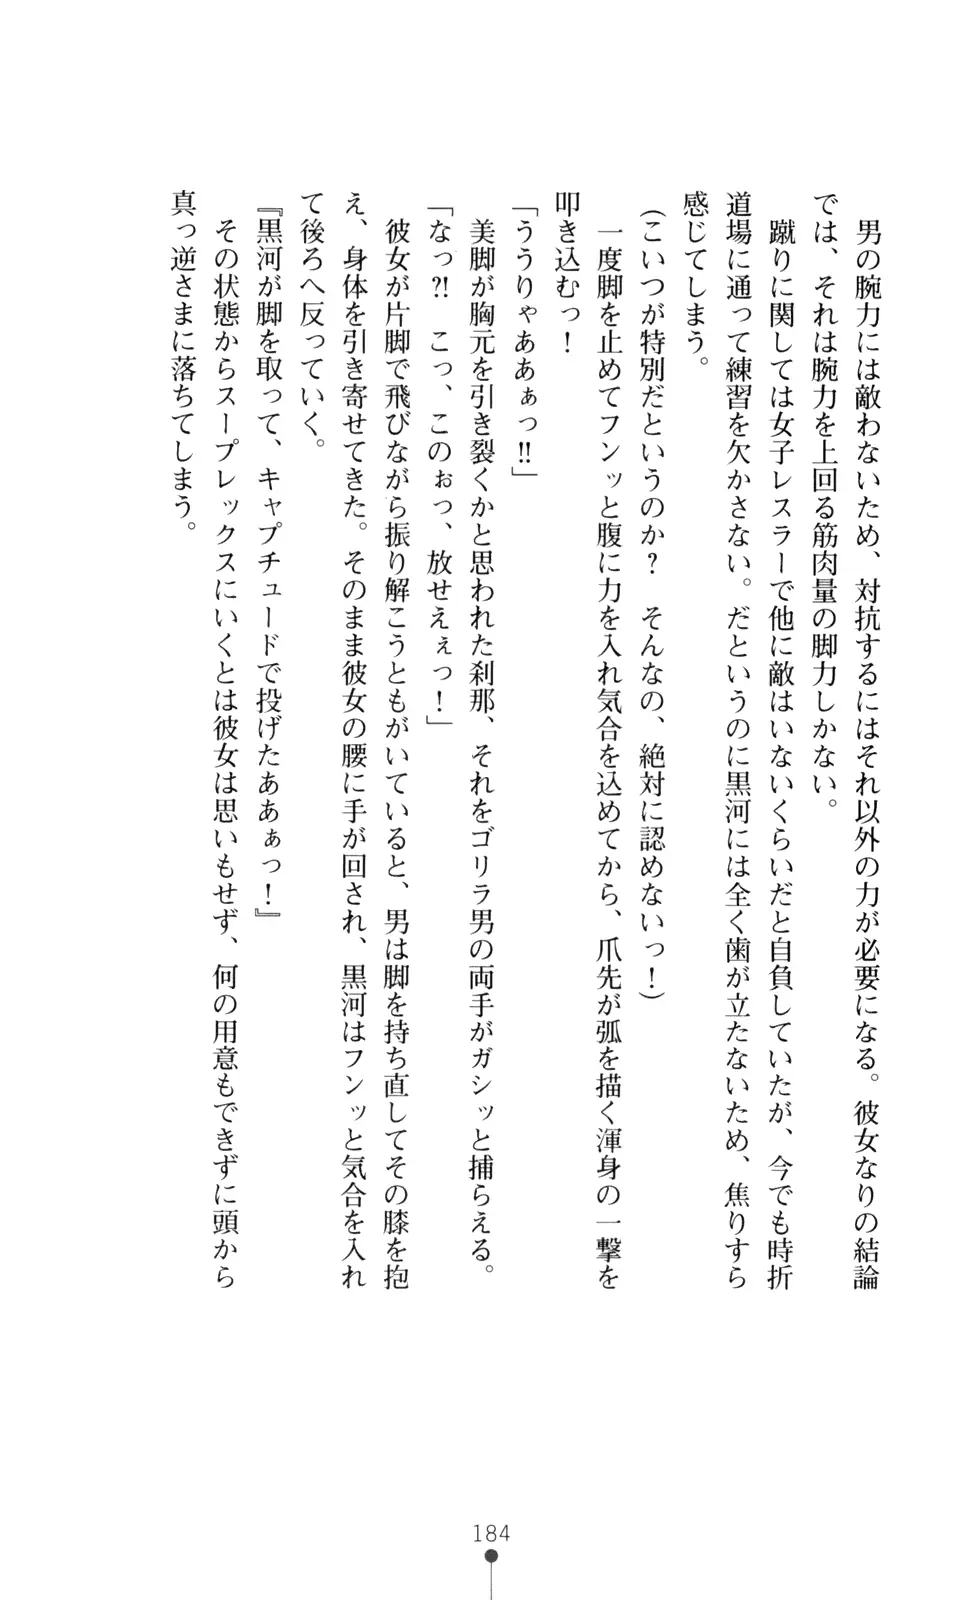 男の腕力には敵わないため、対抗するにはそれ以外の力が必要になる。彼女なりの結論
では、それは腕力を上回る筋肉量の脚力しかない。
　蹴りに関しては女子レスラーで他に敵はいないくらいだと自負していたが、今でも時折
道場に通って練習を欠かさない。だというのに黒河には全く歯が立たないため、焦りすら
感じてしまう。
（こいつが特別だというのか？　そんなの、絶対に認めないっ！）
　一度脚を止めてフンッと腹に力を入れ気合を込めてから、爪先が弧を描く渾身の一撃を
叩き込むっ！
「ううりゃああぁっ!!」
　美脚が胸元を引き裂くかと思われた刹那、それをゴリラ男の両手がガシッと捕らえる。
「なっ?!　こっ、このぉっ、放せえぇっ！」
　彼女が片脚で飛びながら振り解こうともがいていると、男は脚を持ち直してその膝を抱
え、身体を引き寄せてきた。そのまま彼女の腰に手が回され、黒河はフンッと気合を入れ
て後ろへ反っていく。
『黒河が脚を取って、キャプチュードで投げたああぁっ！』
　その状態からスープレックスにいくとは彼女は思いもせず、何の用意もできずに頭から
真っ逆さまに落ちてしまう。
184